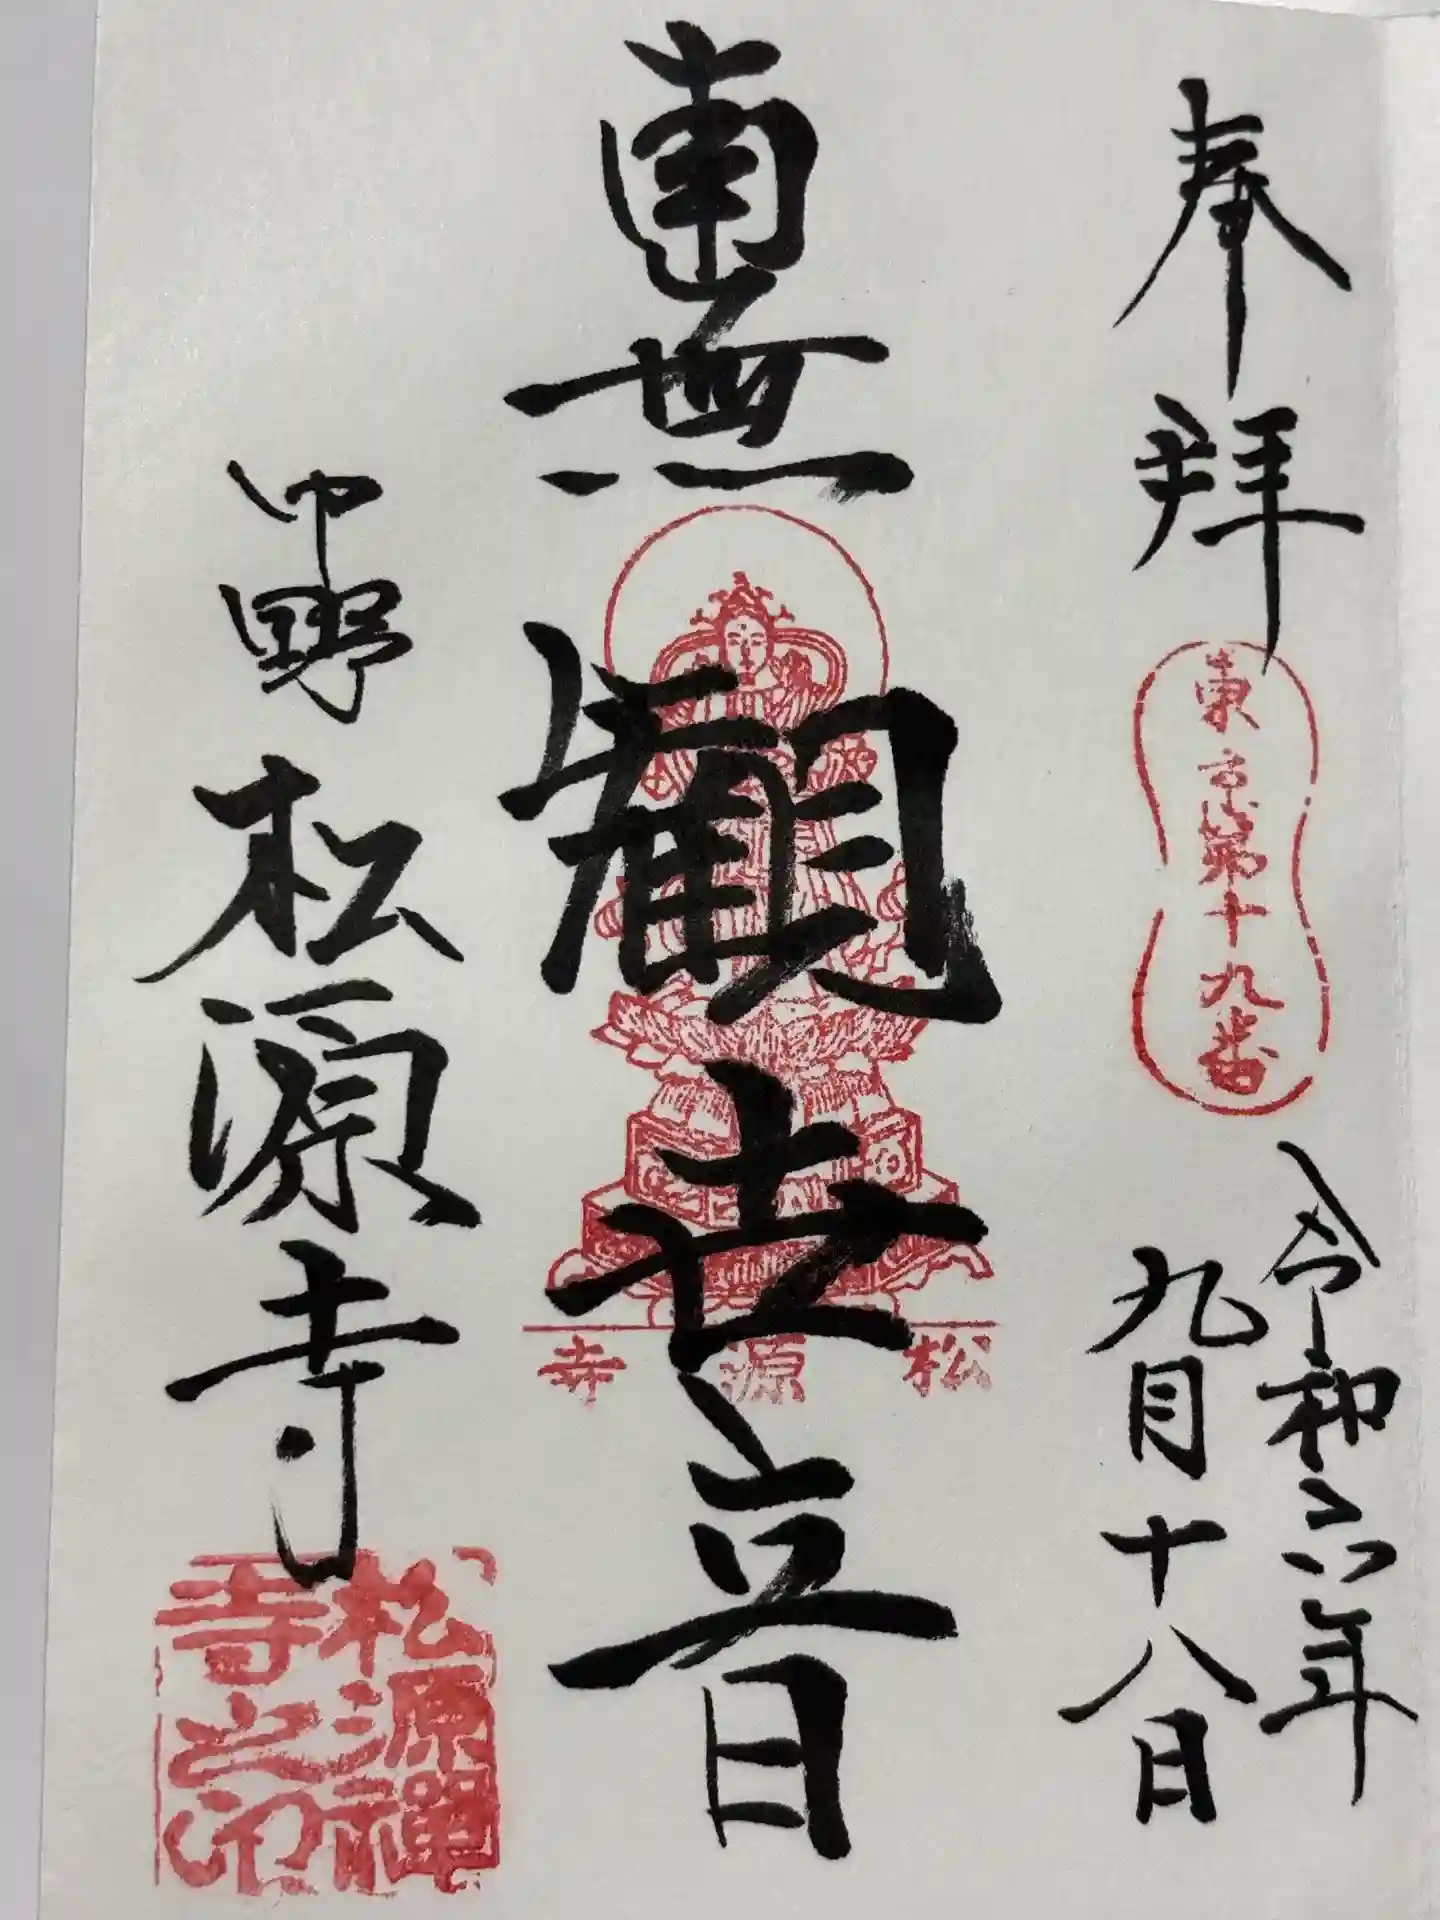 奉拝
東京第十九番
令和六年
九月十八日
南無
観世音
松源寺
中野
松源寺
松源禅
寺之印